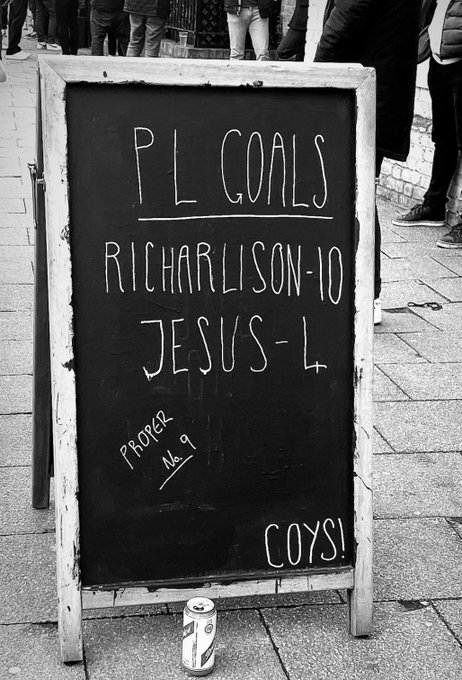 PL GOALS
RICHARLISON-10
JESUS-4
PROPER
No. 9
COYS!